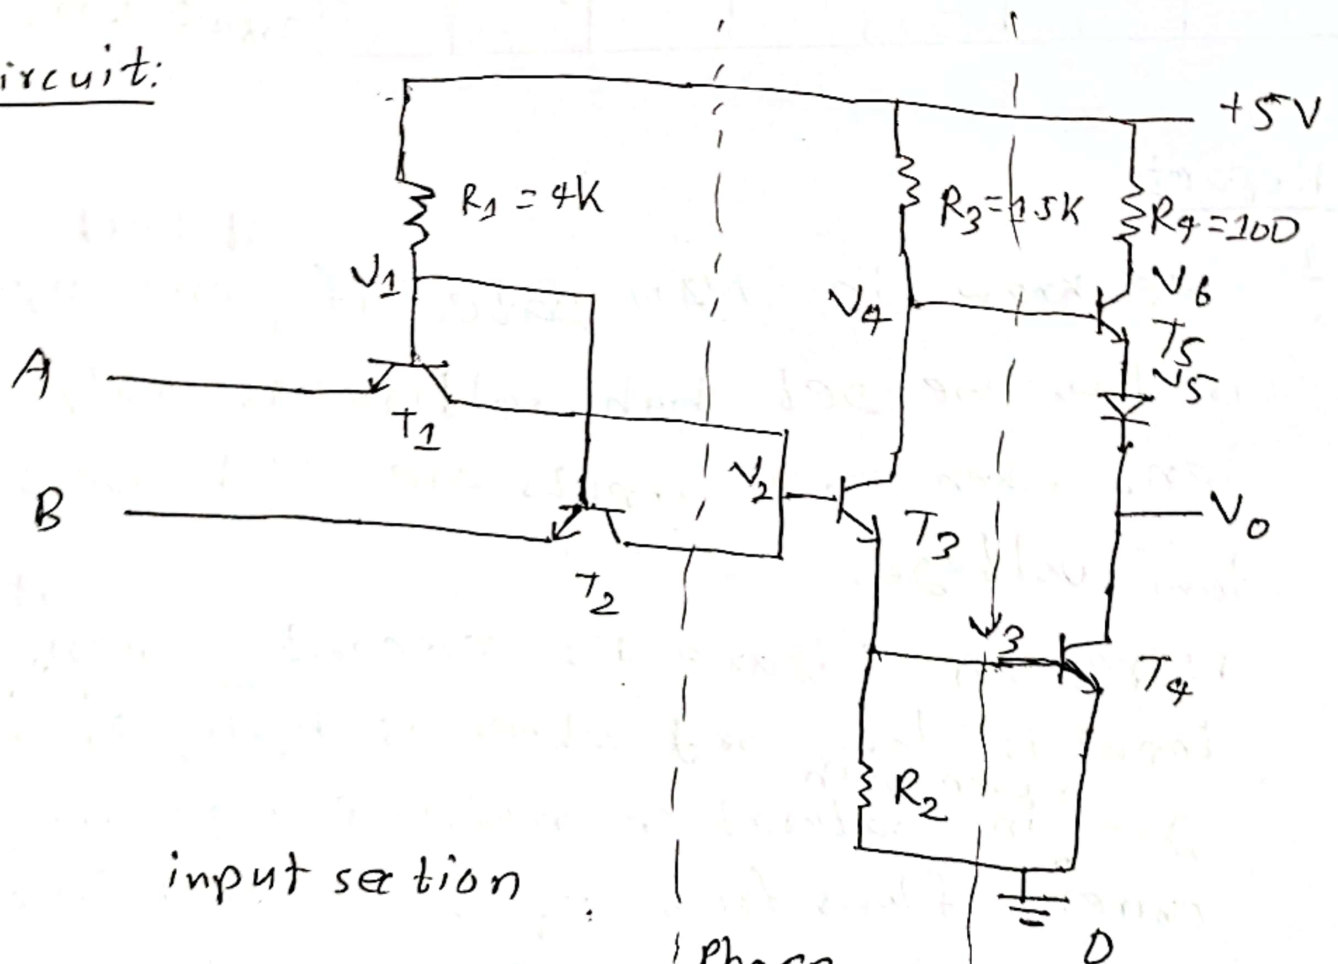 ircuit:
+5V
R1 = 4K
R3=15K
R4=100
V1
V4
V6
T5
V5
A
T1
V2
B
T3
Vo
T2
V3
T4
R2
input section
Phase
0